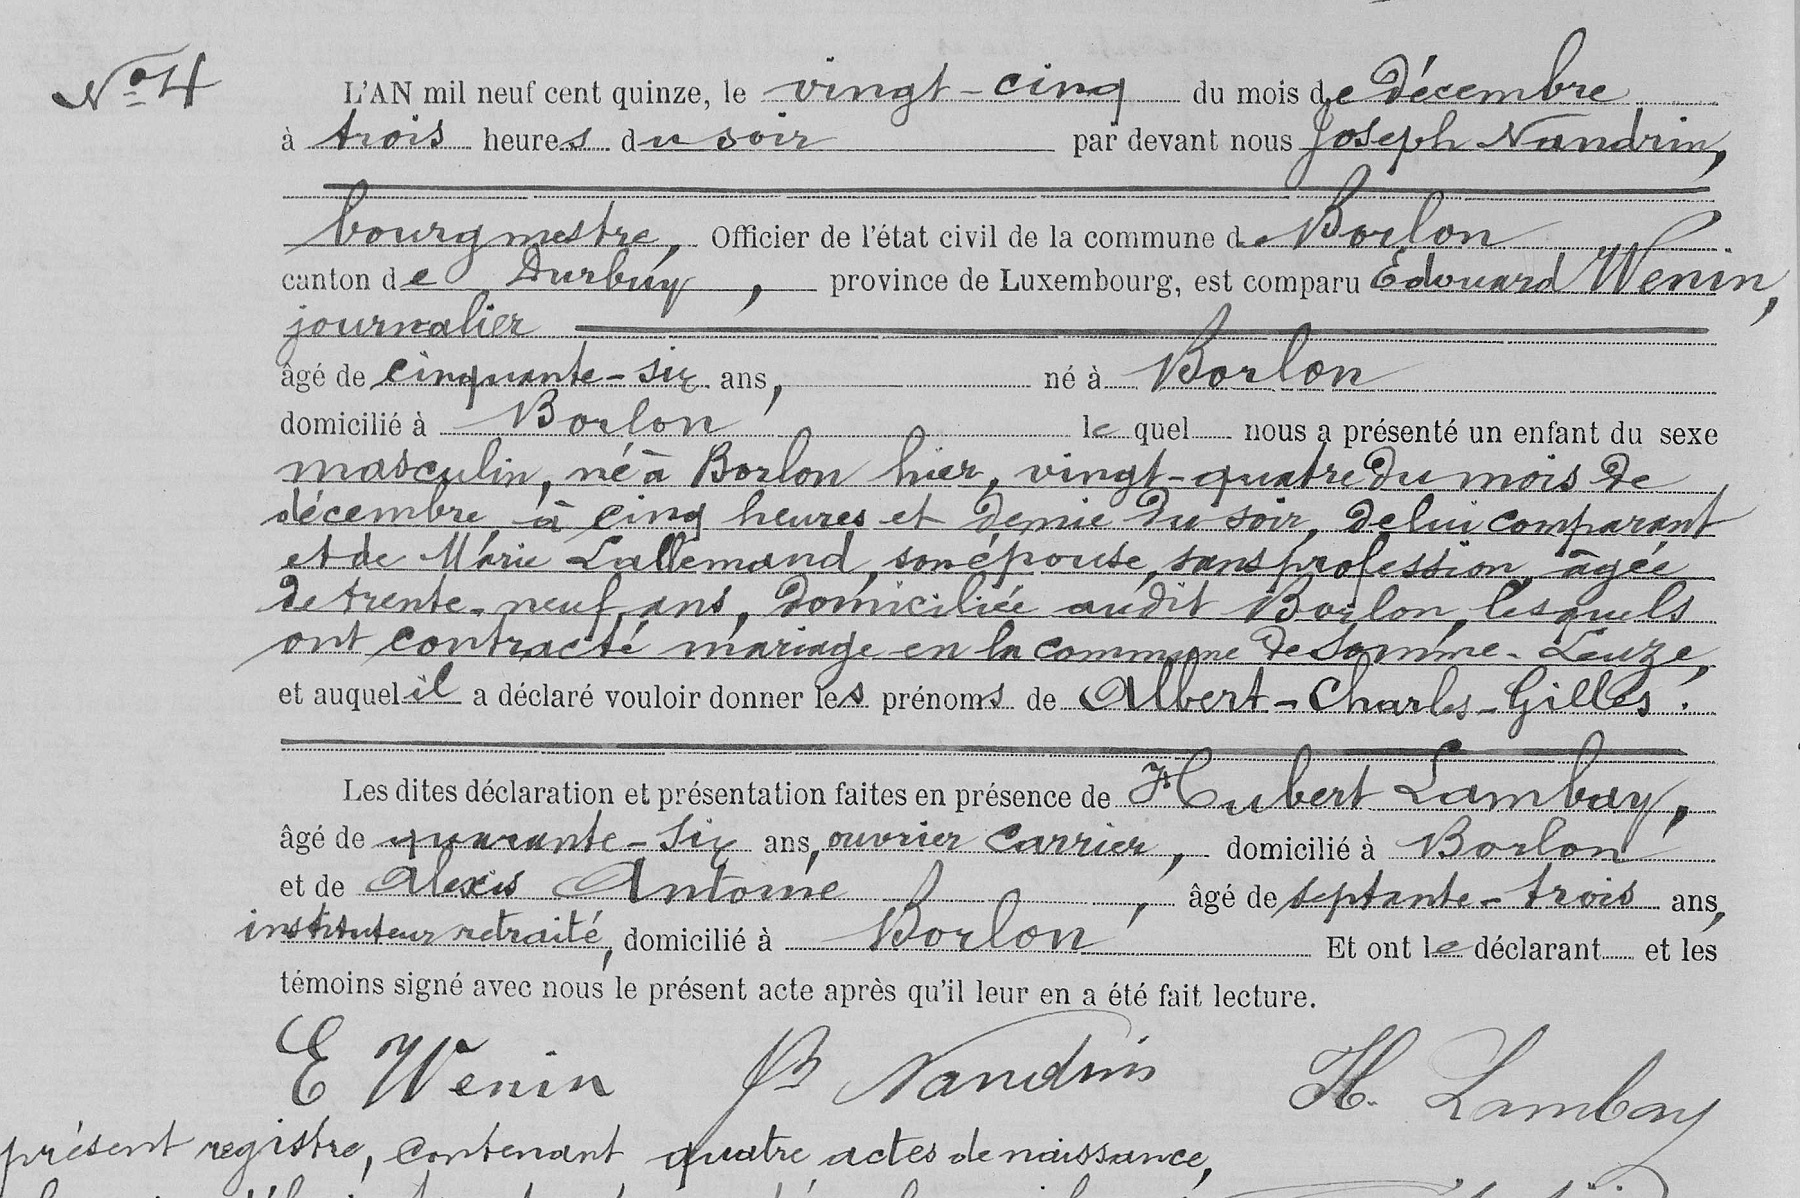 N° 4
L'AN mil neuf cent quinze, le vingt-cinq du mois de Décembre
à trois heures du soir par devant nous Joseph Nandrin,
bourgmestre, Officier de l'état civil de la commune de Borlon
canton de Durbuy, province de Luxembourg, est comparu Edouard Wenin,
journalier
âgé de cinquante-six ans, né à Borlon
domicilié à Borlon le quel nous a présenté un enfant du sexe
masculin, né à Borlon hier, vingt-quatre du mois de
décembre, à cinq heures et demie du soir, de lui comparant
et de Marie Lallemand, son épouse, sans profession, âgée
de trente-neuf ans, domiciliée audit Borlon, lesquels
ont contracté mariage en la commune de Somme-Leuze,
et auquel il a déclaré vouloir donner les prénoms de Albert-Charles-Gilles.
Les dites déclaration et présentation faites en présence de Hubert Lambay,
âgé de quarante-six ans, ouvrier carrier, domicilié à Borlon
et de Alexis Antoine, âgé de septante-trois ans,
instituteur retraité, domicilié à Borlon Et ont le déclarant et les
témoins signé avec nous le présent acte après qu'il leur en a été fait lecture.
E Wenin Jh Nandrin H. Lambay
présent registre, contenant quatre actes de naissance,